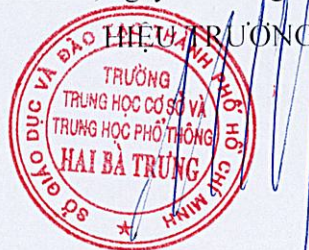 HIỆU TRƯỞNG
SỞ GIÁO DỤC VÀ ĐÀO TẠO THÀNH PHỐ HỒ CHÍ MINH
TRƯỜNG
TRUNG HỌC CƠ SỞ VÀ
TRUNG HỌC PHỔ THÔNG
HAI BÀ TRƯNG